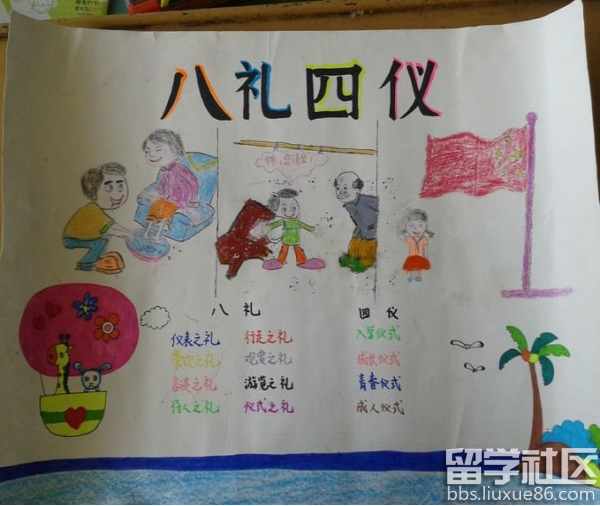 八礼四仪
师，您请坐！
八 礼 四 仪
仪表之礼 行走之礼 入学仪式
餐饮之礼 观赏之礼 成长仪式
言谈之礼 游览之礼 青春仪式
待人之礼 仪式之礼 成人仪式
留学社区
bbs.liuxue86.com